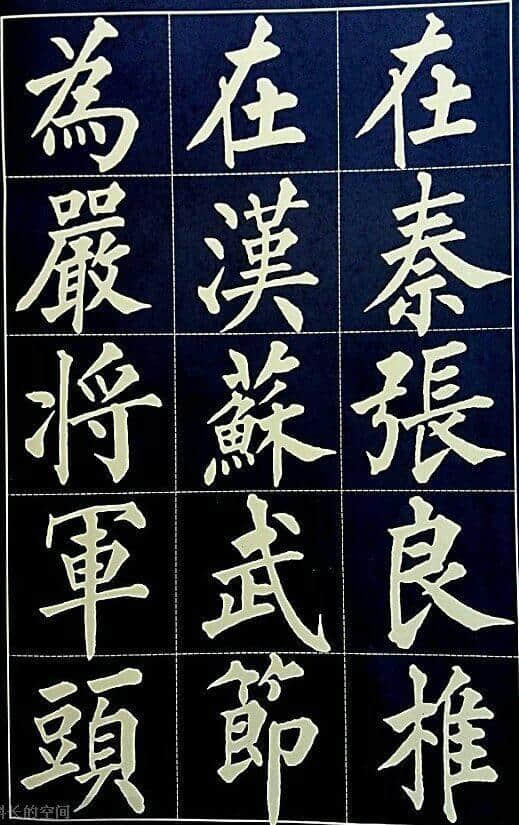 在秦張良椎
在漢蘇武節
為嚴將軍頭
科长的空间